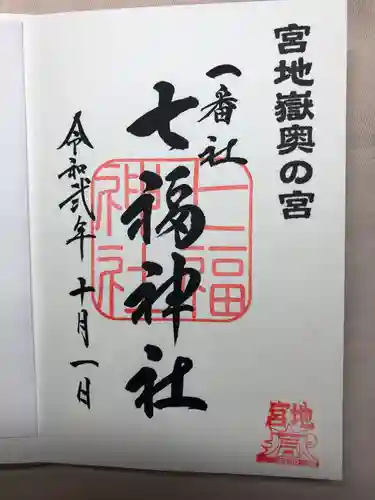 宮地嶽奥の宮
一番社
七福神社
令和弐年十月一日
七福神社
宮地嶽